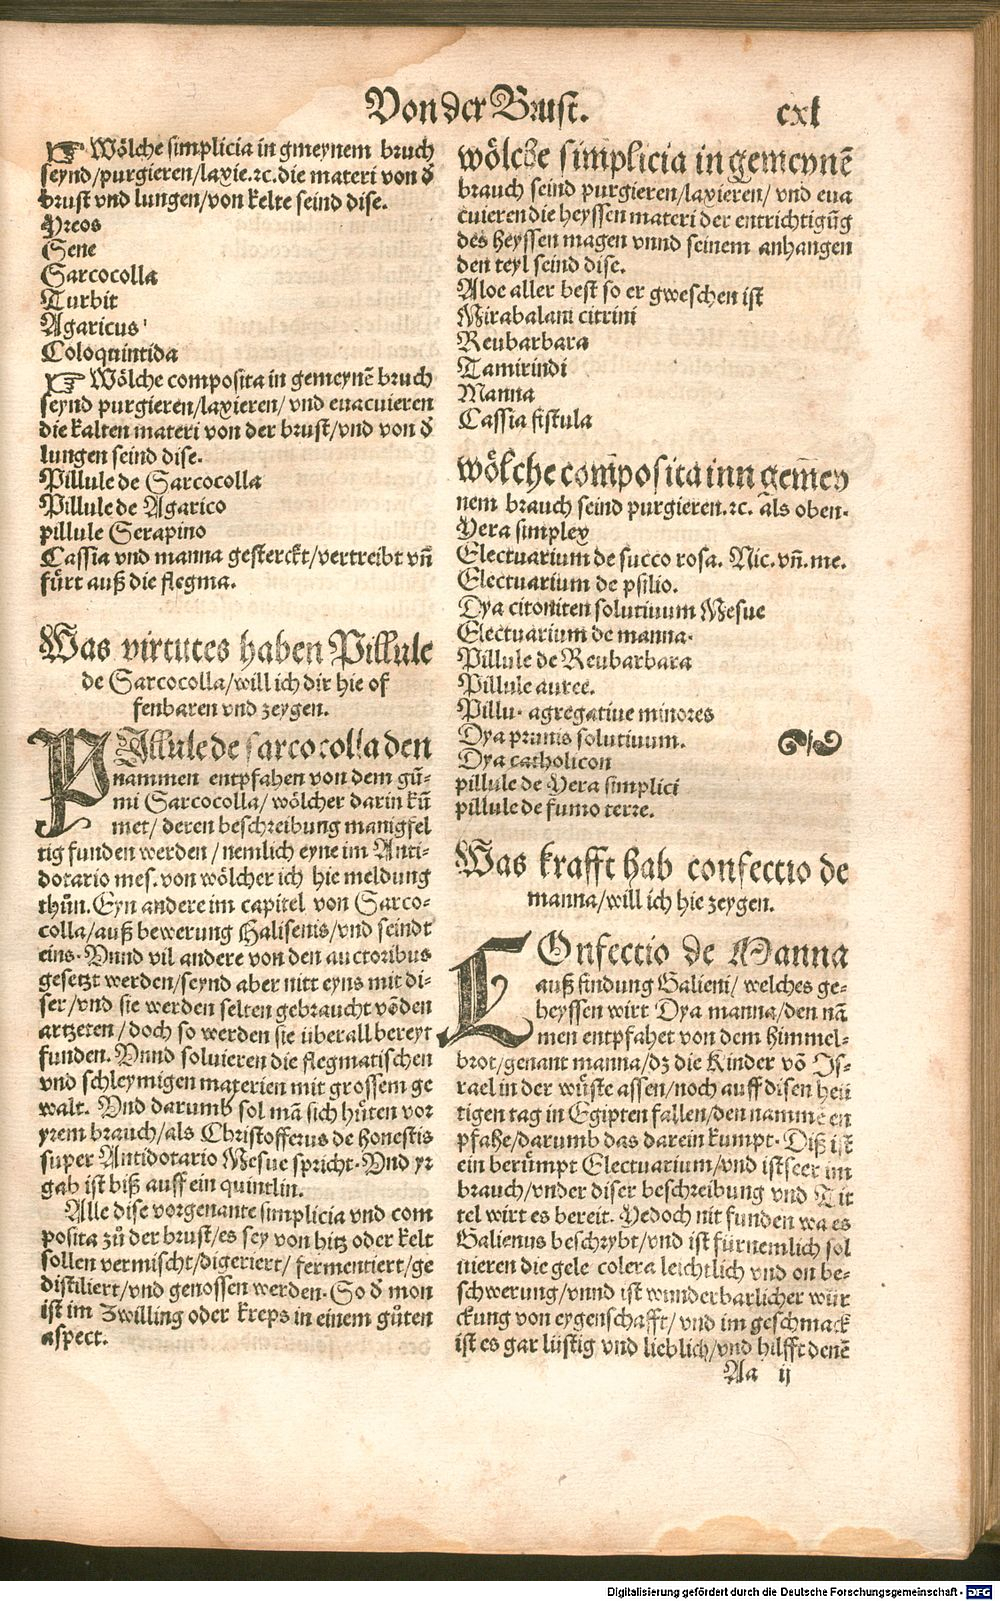 Von der Brust.
cxl
☞ Wölche simplicia in gmeynem bruch
seynd/purgieren/laxie.ꝛc.die materi von d̕
brust vnd lungen/von kelte seind dise.
Yreos
Sene
Sarcocolla
Turbit
Agaricus
Coloquintida
☞ Wölche composita in gemeynē bruch
seynd purgieren/laxieren/ vnd euacuieren
die kalten materi von der brust/vnd von d̕
lungen seind dise.
Pillule de Sarcocolla
Pillule de Agarico
pillule Serapino
Cassia vnd manna gesterckt/vertreibt vn̄
fürt auß die flegma.
Was virtutes haben Pillule
de Sarcocolla/will ich dir hie of
fenbaren vnd zeygen.
PIllule de sarcocolla den
nammen entpfahen von dem gū-
mi Sarcocolla/ wölcher darin kū
met/ deren beschreibung manigfel
tig funden werden / nemlich eyne im Anti-
dotario mes. von wölcher ich hie meldung
thůn. Eyn andere im capitel von Sarco-
colla/auß bewerung Halisenis/vnd seindt
eins. Vnnd vil andere von den auctoribus
gesetzt werden/seynd aber nitt eyns mit di-
ser/vnd sie werden selten gebraucht vō den
artzeten / doch so werden sie überall bereyt
funden. Vnnd soluieren die flegmatischen
vnd schleymigen materien mit grossem ge
walt. Vnd darumb sol mā sich hüten vor
yrem brauch/als Christofferus de honestis
super Antidotario Mesue spricht. Vnd yr
gab ist biß auff ein quintlin.
Alle dise vorgenante simplicia vnd com
posita zů der brust/es sey von hitz oder kelt
sollen vermischt/digeriert/ fermentiert/ge
distiliert/vnd genossen werden. So d̕ mon
ist im Zwilling oder kreps in einem gůten
aspect.
wölche simplicia in gemeynē
brauch seind purgieren/laxieren/ vnd eua
cuieren die heyssen materi der entrichtigūg
des heyssen magen vnnd seinem anhangen
den teyl seind dise.
Aloe aller best so er gweschen ist
Mirabalani citrini
Reubarbara
Tamirindi
Manna
Cassia fistula
wölche cōmposita inn gemey
nem brauch seind purgieren.ꝛc. als oben.
Yera simplex
Electuarium de succo rosa. Nic. vn̄. me.
Electuarium de psilio.
Dya citoniten solutiuum Mesue
Electuarium de manna.
Pillule de Reubarbara
Pillule auree.
Pillu. agregatiue minores
Dya prunis solutiuum.
Dya catholicon
pillule de Yera simplici
pillule de fumo terre.
Was krafft hab confectio de
manna/will ich hie zeygen.
COnfectio de Manna
auß findung Galieni/ welches ge-
heyssen wirt Dya manna/den nā
men entpfahet von dem himmel-
brot/genant manna/dz die Kinder vō Is-
rael in der wüste assen/noch auff disen heü
tigen tag in Egipten fallen/den namme en
pfahe/darumb das darein kumpt. Diß ist
ein berümpt Electuarium/vnd ist seer im
brauch/vnder diser beschreibung vnd Tit
tel wirt es bereit. Yedoch nit funden wa es
Galienus beschrybt/vnd ist fürnemlich sol
uieren die gele colera leichtlich vnd on be-
schwerung/vnnd ist wunderbarlicher wür
ckung von eygenschafft/ vnd im geschmack
ist es gar lüstig vnd lieblich/vnd hilfft denē
Aa ij
Digitalisierung gefördert durch die Deutsche Forschungsgemeinschaft - DFG